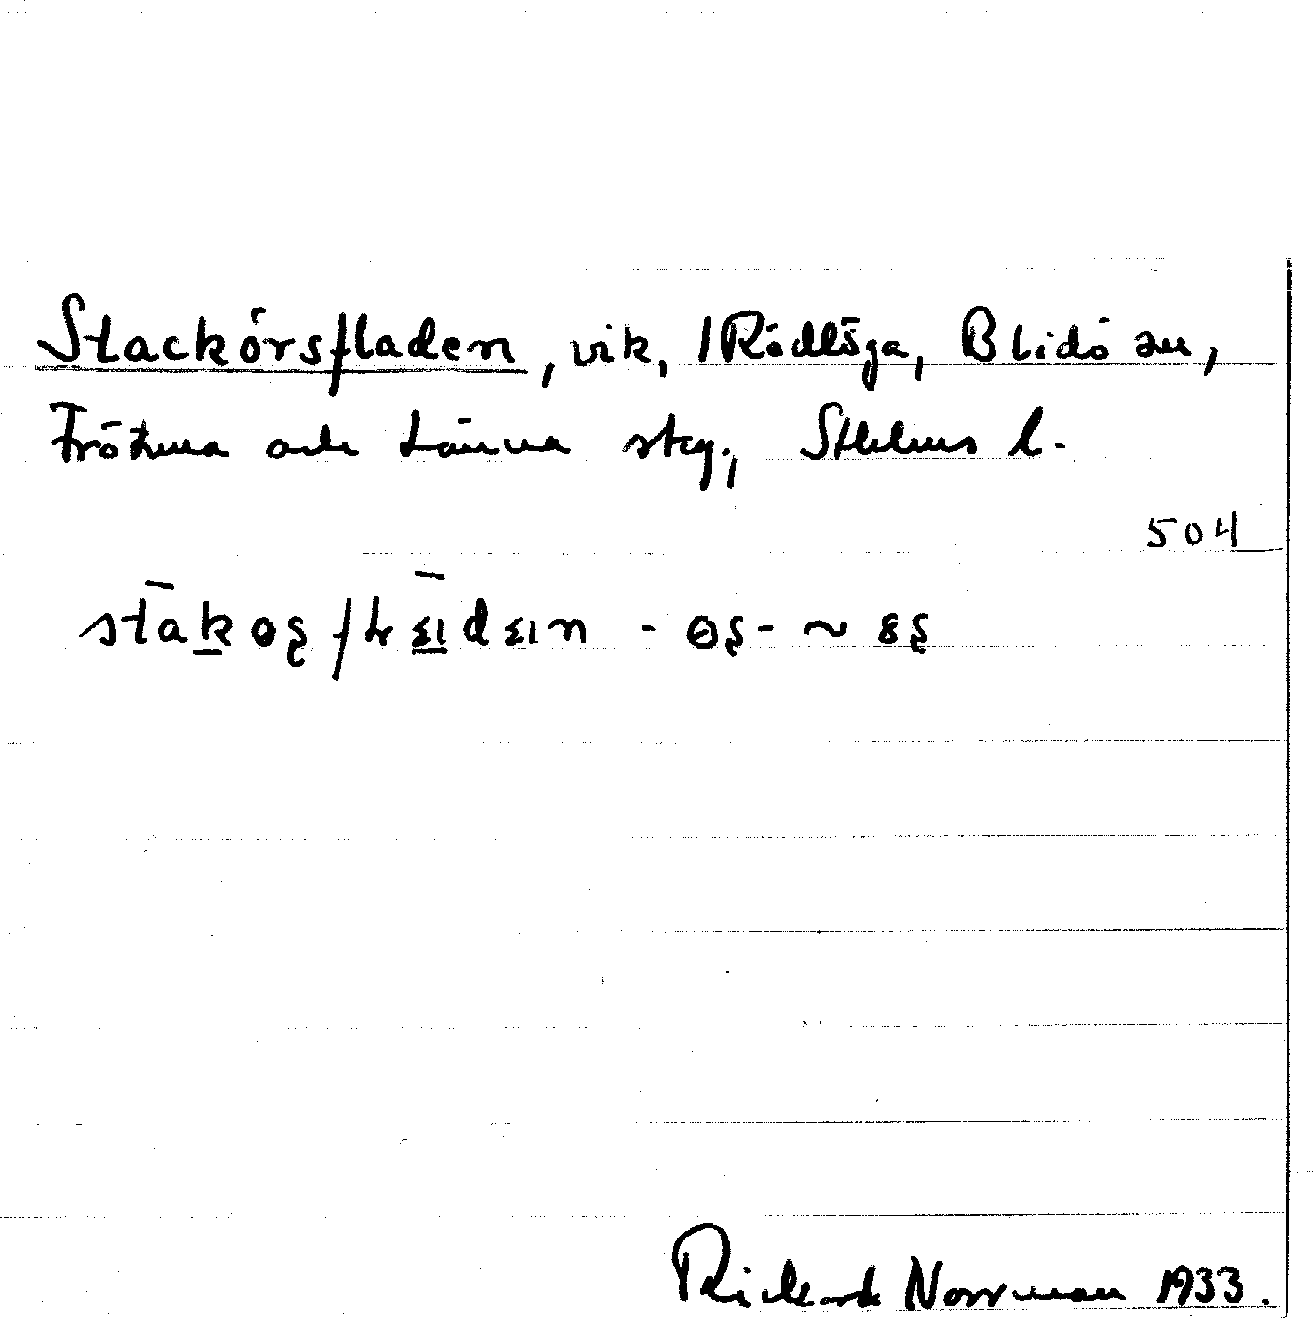 Stackörsfladen, vik, /Rödlöga, Blidö sn,
Frötuna och Länna skg., Sthlms l.
504
Rickard Norrman 1933.